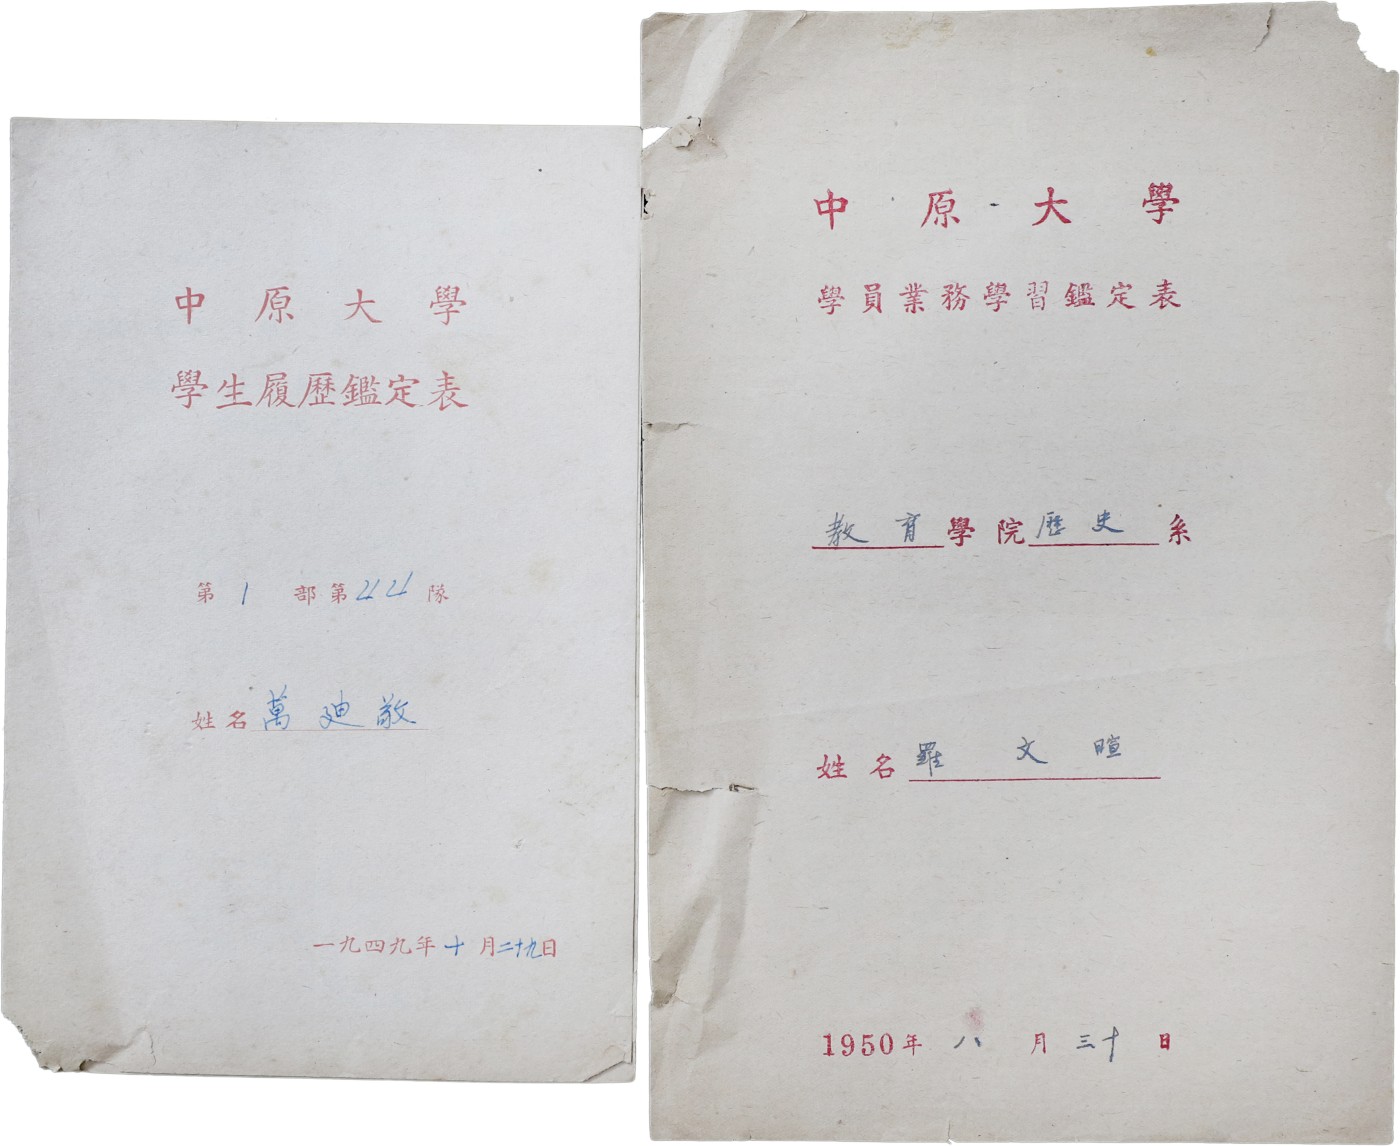 中原大學
學生履歷鑑定表
第1部第44隊
姓名萬廸敬
一九四九年十月二十九日
中原大學
學員業務學習鑑定表
教育學院歷史系
姓名羅文暄
1950年八月三十日